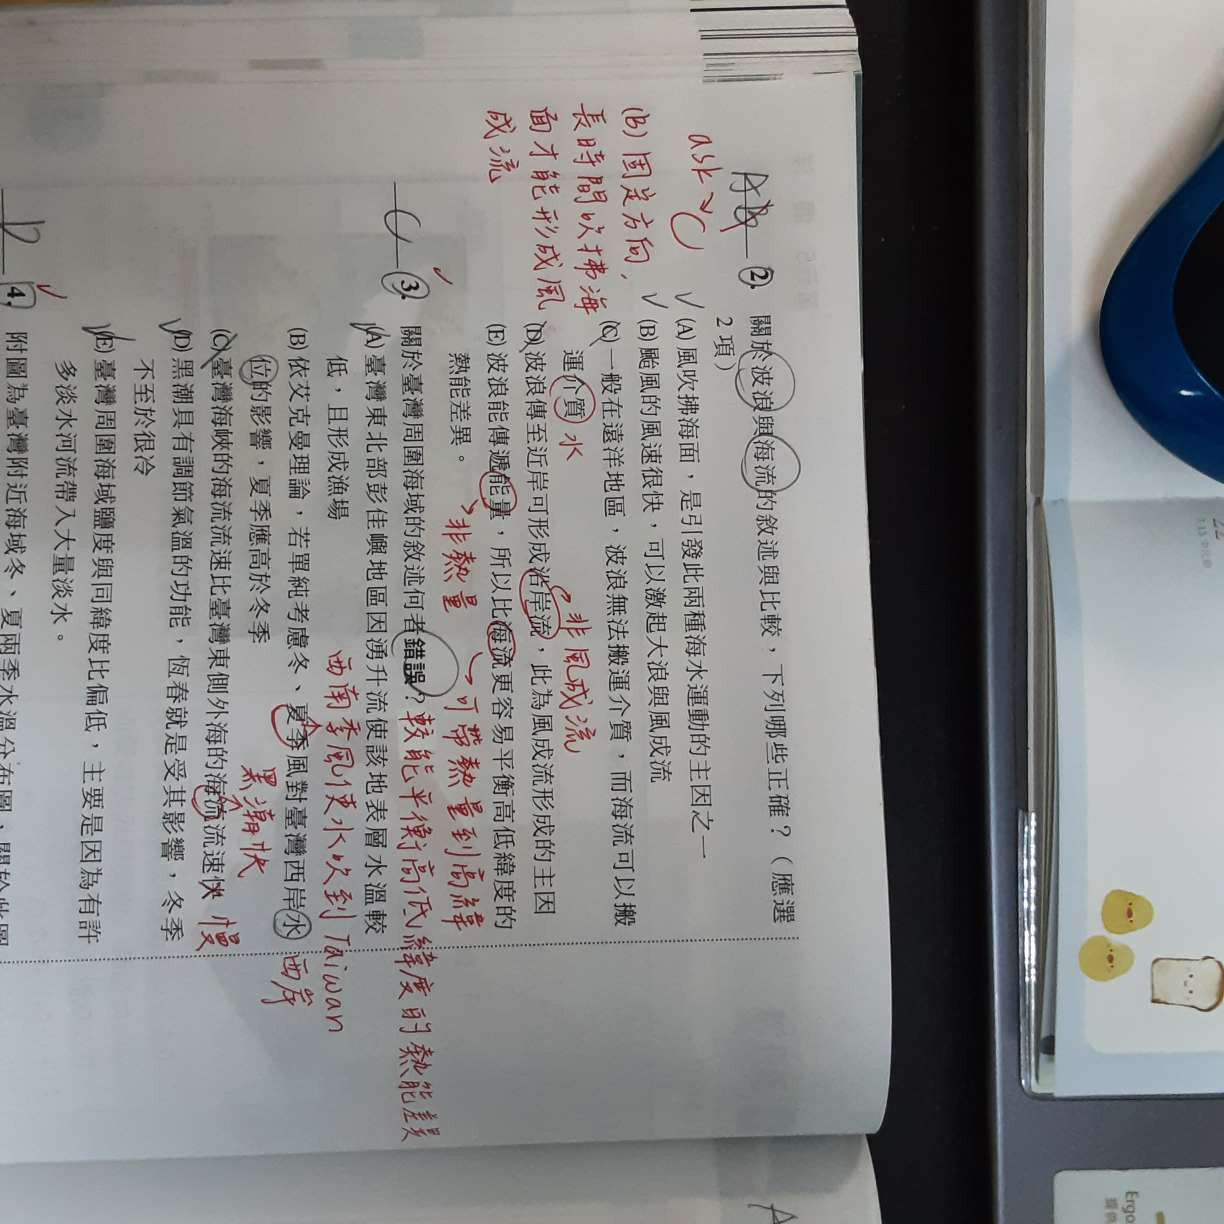 ask → C
A
2. 關於波浪與海流的敘述與比較，下列哪些正確？（應選
2 項）
(A) 風吹拂海面，是引發此兩種海水運動的主因之一
(B) 颱風的風速很快，可以激起大浪與風成流
(C) 一般在遠洋地區，波浪無法搬運介質，而海流可以搬
運介質
水
(D) 波浪傳至近岸可形成沿岸流，此為風成流形成的主因
非風成流
(E) 波浪能傳遞能量，所以比海流更容易平衡高低緯度的
熱能差異。
非熱量
可帶熱量到高緯
較能平衡高低緯度的熱能差異
(B) 固定方向，
長時間吹拂海
面才能形成風
成流
C
3. 關於臺灣周圍海域的敘述何者錯誤？
(A) 臺灣東北部彭佳嶼地區因湧升流使該地表層水溫較
低，且形成漁場
西南季風使水吹到 Taiwan
西岸
(B) 依艾克曼理論，若單純考慮冬、夏季風對臺灣西岸水
位的影響，夏季應高於冬季
(C) 臺灣海峽的海流流速比臺灣東側外海的海流流速快
黑潮快
慢
(D) 黑潮具有調節氣溫的功能，恆春就是受其影響，冬季
不至於很冷
(E) 臺灣周圍海域鹽度與同緯度比偏低，主要是因為有許
多淡水河流帶入大量淡水。
D
4. 附圖為臺灣附近海域冬、夏兩季水溫分布圖，關於此圖
Ergo